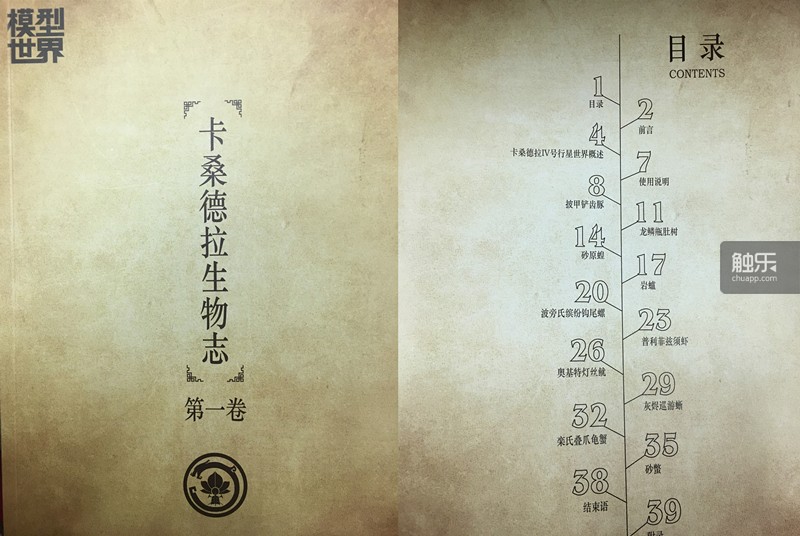 模型
世界
卡桑德拉生物志
第一卷
目录
CONTENTS
1
目录
2
前言
4
卡桑德拉IV号行星世界概述
7
使用说明
8
披甲铲齿豚
11
龙鳞瓶肚树
14
砂原蝗
17
岩蠊
20
波旁氏缤纷钩尾螺
23
普利菲兹须虾
26
奥基特灯丝鱿
29
灰烬巡游蜥
32
栾氏叠爪龟蟹
35
砂螯
38
结束语
39
附录
触乐
chuapp.com